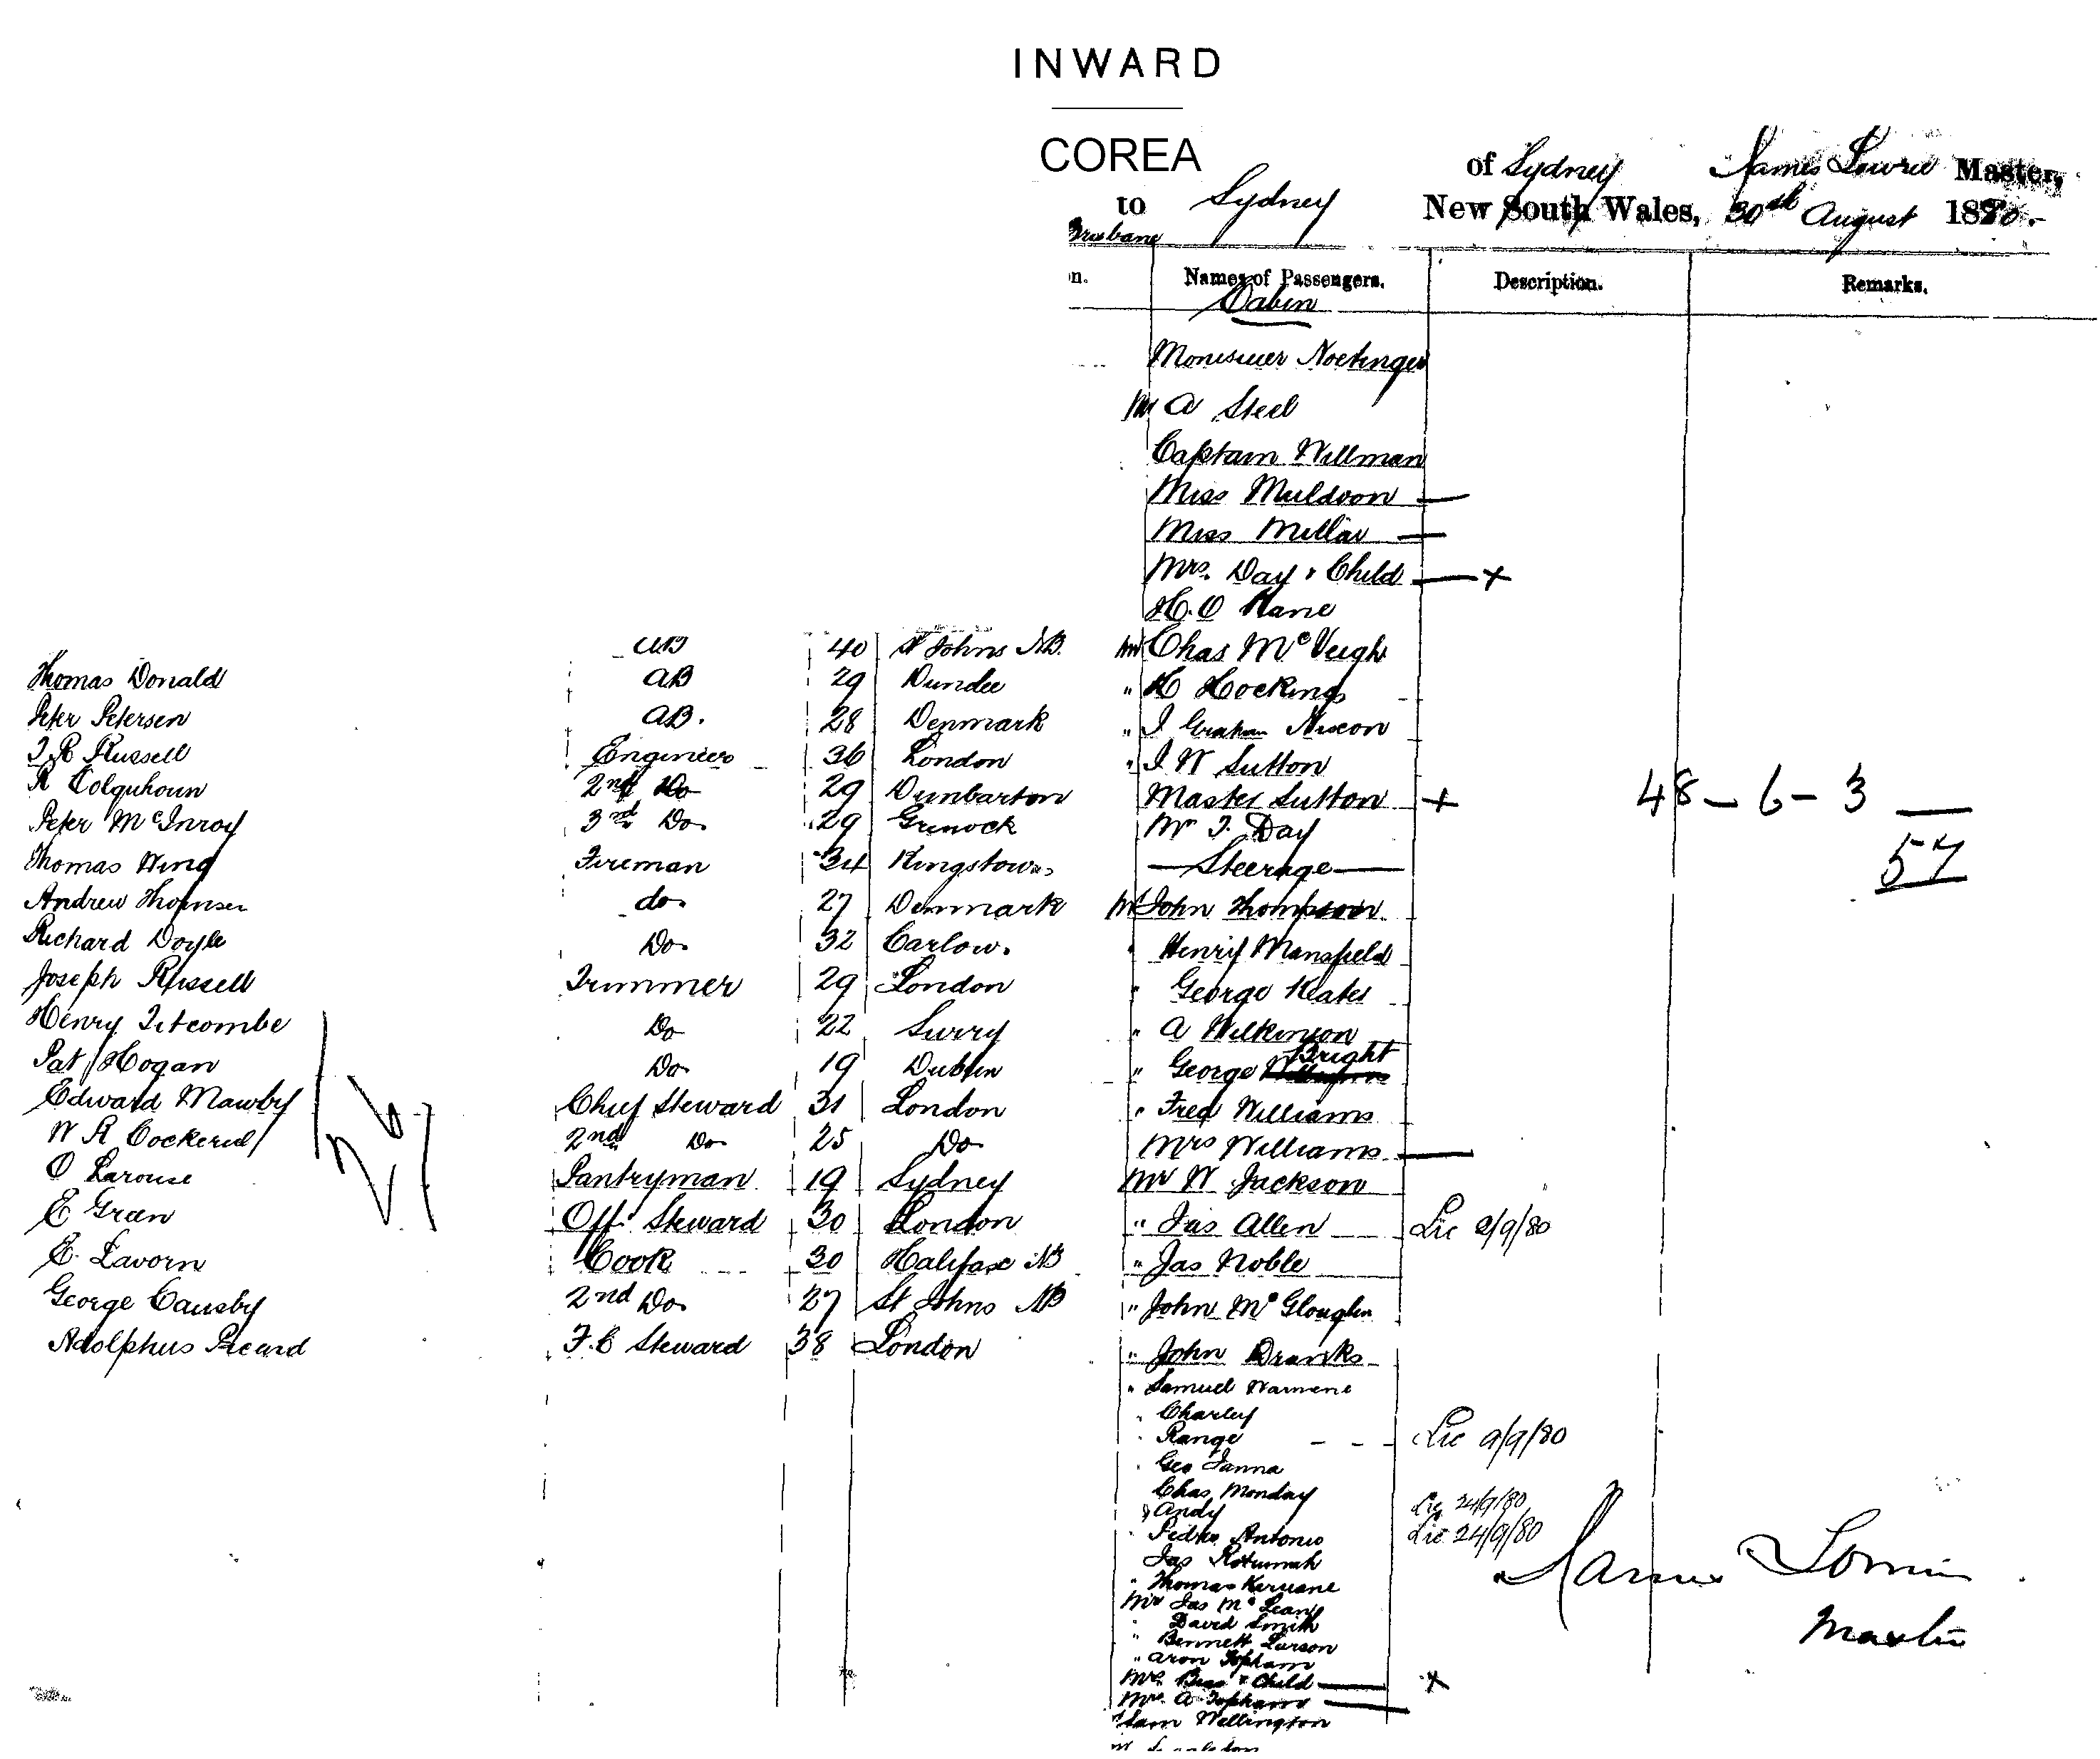 INWARD
COREA
of Sydney James Lowrie Master,
to Sydney New South Wales, 30th August 1880.
Brisbane
n. Names of Passengers. Description. Remarks.
Cabin
Monsieur Noetinger
Mr A Steel
Captain Willman
Miss Muldoon —
Miss Millar —
Mrs. Day & Child — x
H. O Kane
AB 40 St Johns NB. Mr Chas McVeigh
Thomas Donald AB 29 Dundee " H Hockings
Peter Petersen AB. 28 Denmark " J Graham Nixon
J R Russell Engineer 36 London " J W Sutton
R Colquhoun 2nd Do 29 Dunbarton Master Sutton + 48 – 6 – 3 —
Peter McInroy 3rd Do 29 Grenock Mr J. Day
57
Thomas Wing Fireman 34 Kingstown —Steerage—
Andrew Thomsen do 27 Denmark Mr John Thompson
Richard Doyle Do 32 Carlow. " Henry Mansfield
Joseph Russell Trimmer 29 London " George Keates
Henry Titcombe Do 22 Surry " A Wilkinson
Pat Hogan Do 19 Dublin " George Bright
Edward Mawby Chief Steward 31 London " Fred Williams
W R Cockerel 2nd Do 25 Do Mrs Williams —
O Larouse Pantryman 19 Sydney Mr W Jackson
E Gran Off. Steward 30 London " Jas Allen Lic 9/9/80
E. Lavorn Cook 30 Halifax NB " Jas Noble
George Causby 2nd Do 27 St Johns NB " John McGloughlin
Adolphus Picard F.C Steward 38 London " John Dranks
" Samuel Warnene
" Charley
" Range Lic 9/9/80
" Geo Tanna
Chas Monday Lic 24/9/80
" Andy
" Pedro Antonio Lic 24/9/80
Jas Rotumah
" Thomas
Mr Jas McLean James Lowrie
" David Smith Master
" Bennett Larson
" Aron Topham
Mrs & Child — x
Mrs. A Topham —
Sam Wellington